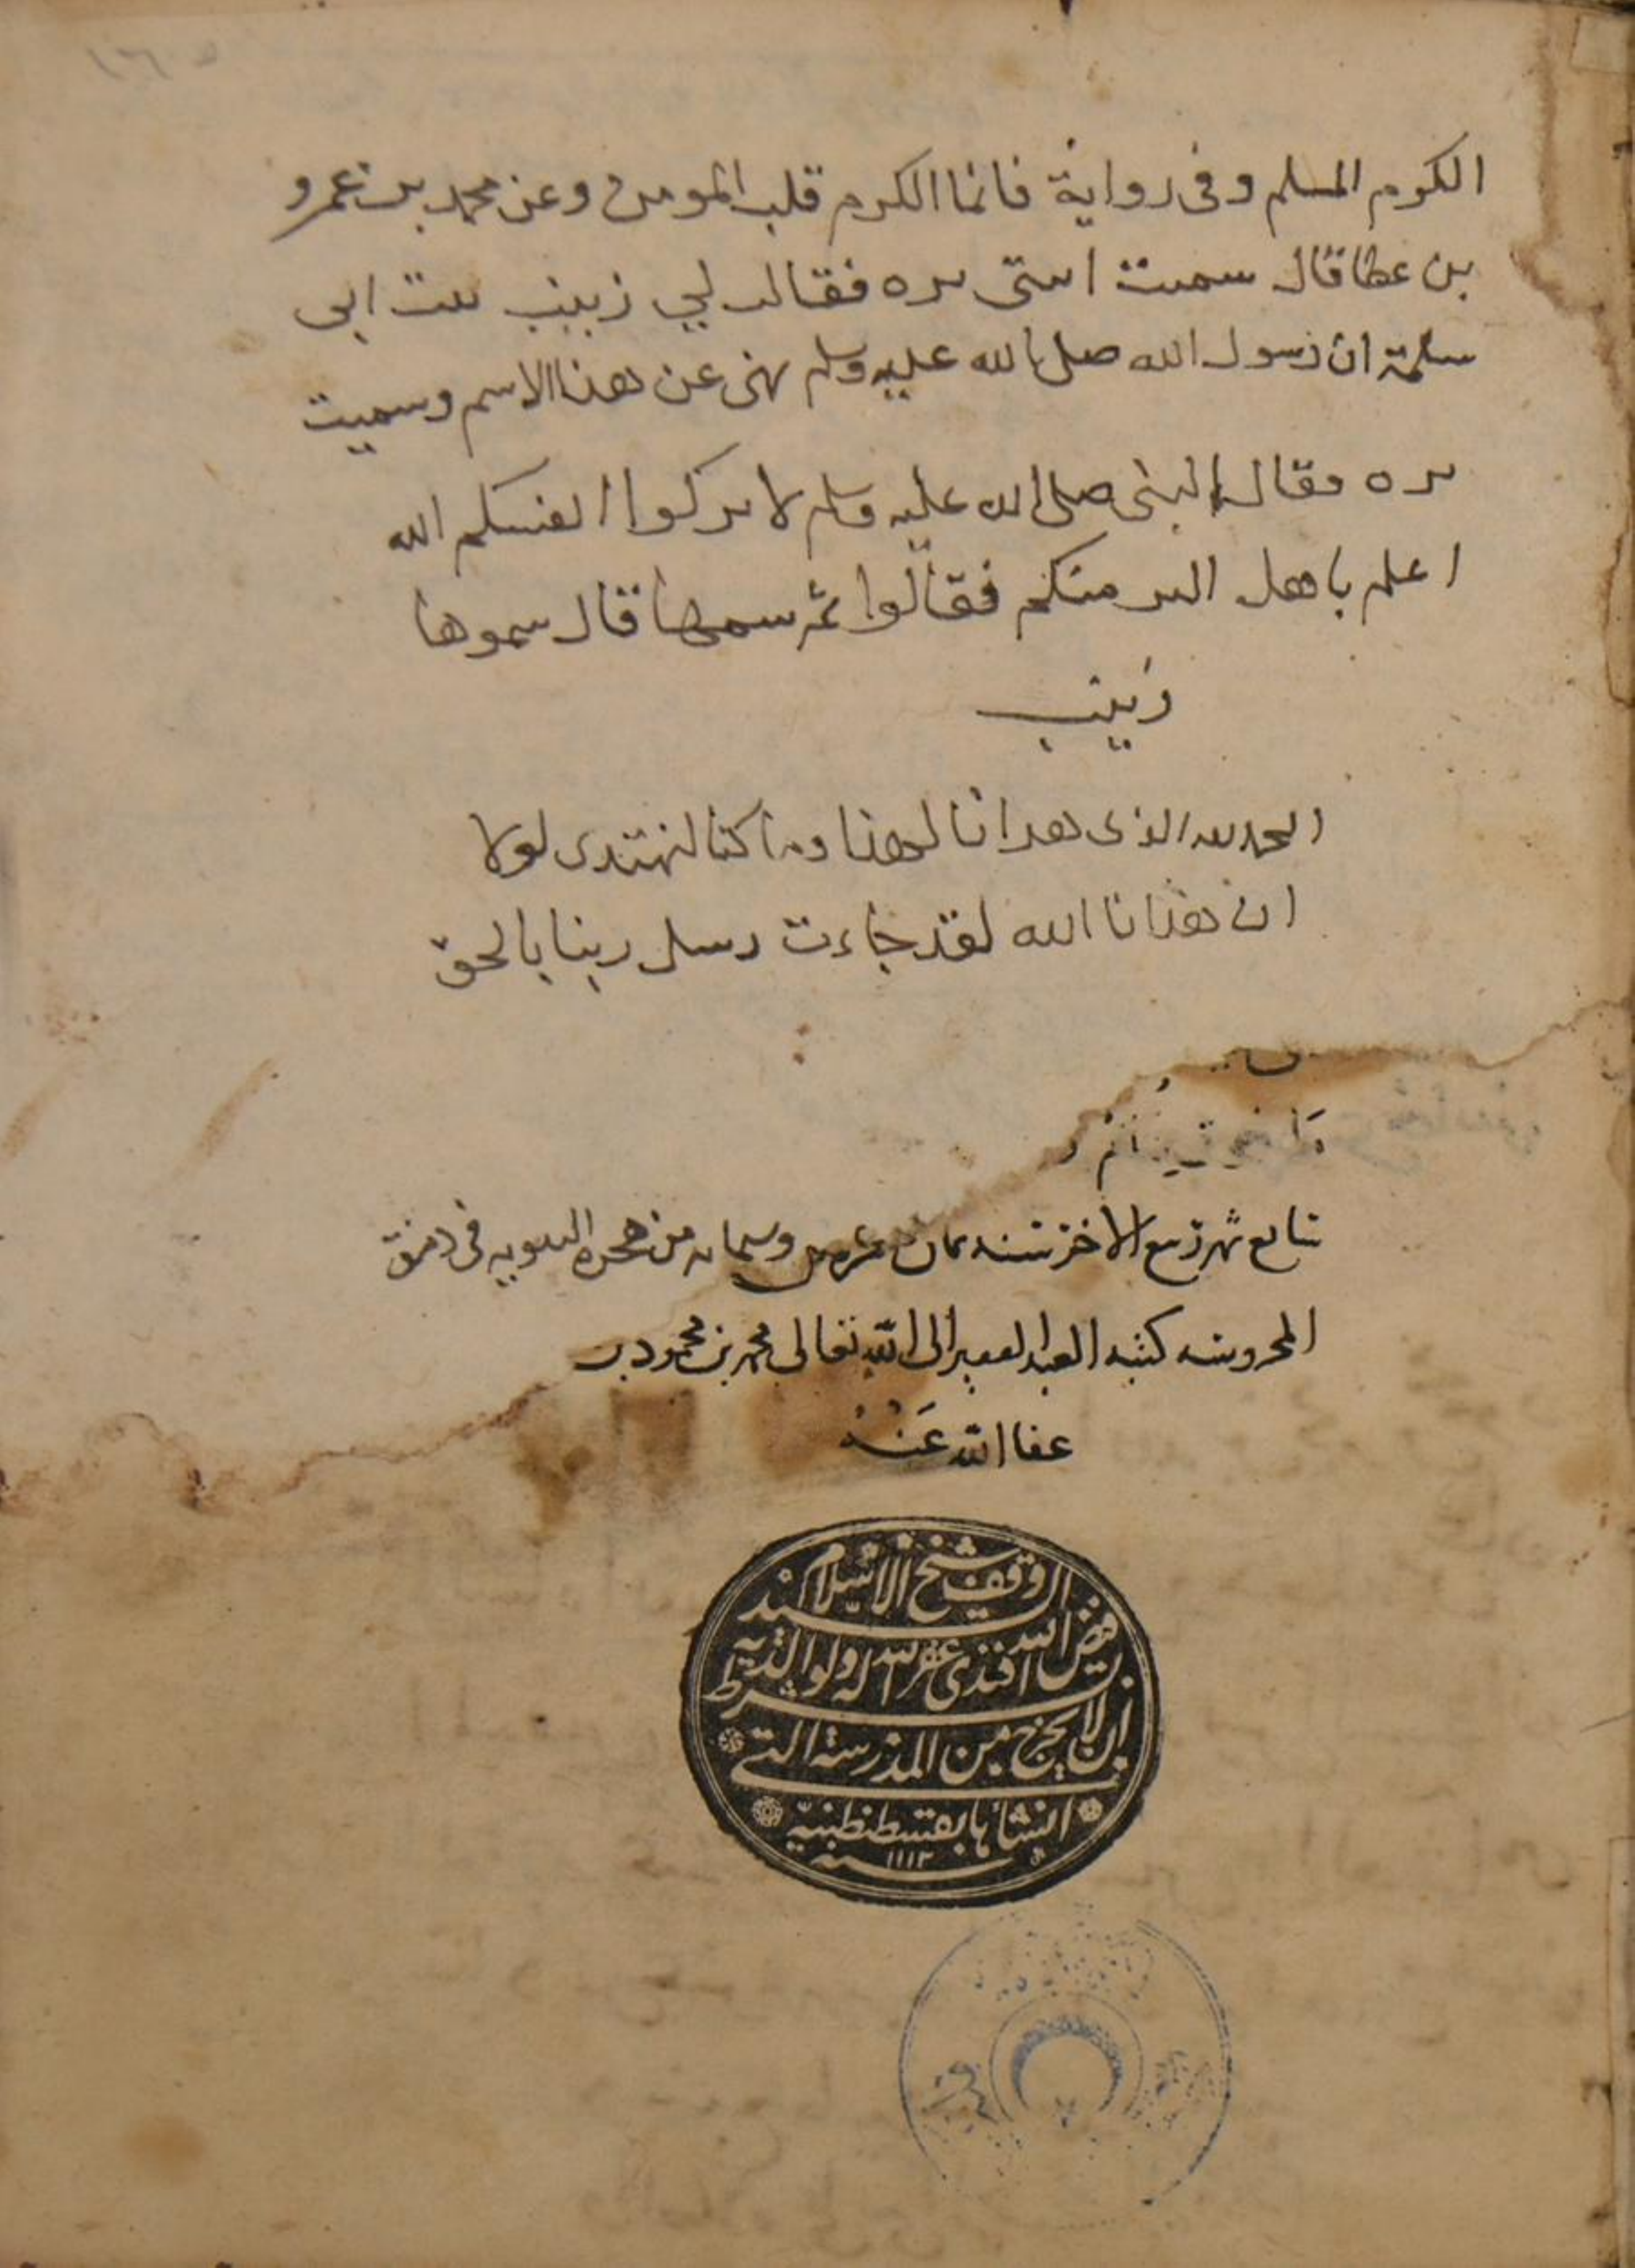 الكرم المسلم وفى رواية فانما الكرم قلب المومن وعن محمد بن عمرو
بن عطا قال سميت ابنتى بره فقالت لي زينب بنت ابى
سلمة ان رسول الله صلى الله عليه وسلم نهى عن هذا الاسم وسميت
بره فقال النبى صلى الله عليه وسلم لا تزكوا انفسكم الله
اعلم باهل البر منكم فقالوا بم نسميها قال سموها
زينب
الحمد لله الذى هدانا لهذا وما كنا لنهتدى لولا
ان هدانا الله لقد جاءت رسل ربنا بالحق
سابع شهر ربيع الاخر سنه ثمان عشره وسبعمايه من هجره النبويه فى دمشق
المحروسه كتبه العبد الفقير الى الله تعالى محمد بن محمود بن
عفا الله عنه
الوقف شيخ الاسلام السيد
فيض الله افندى غفر الله له ولوالديه
بشرط ان لا يخرج من المدرسة التى
انشأها بقسطنطنية
سنة ١١١٢